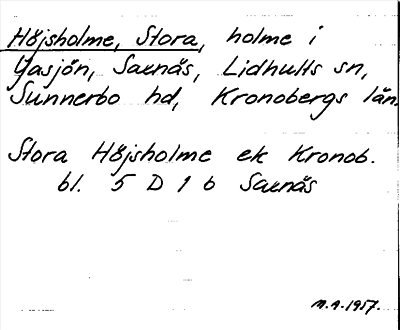 Höjsholme, Stora, holme i
Yasjön, Saxnäs, Lidhults sn,
Sunnerbo hd, Kronobergs län.
Stora Höjsholme ek Kronob.
bl. 5 D 1 b Saxnäs
M.A.1957.